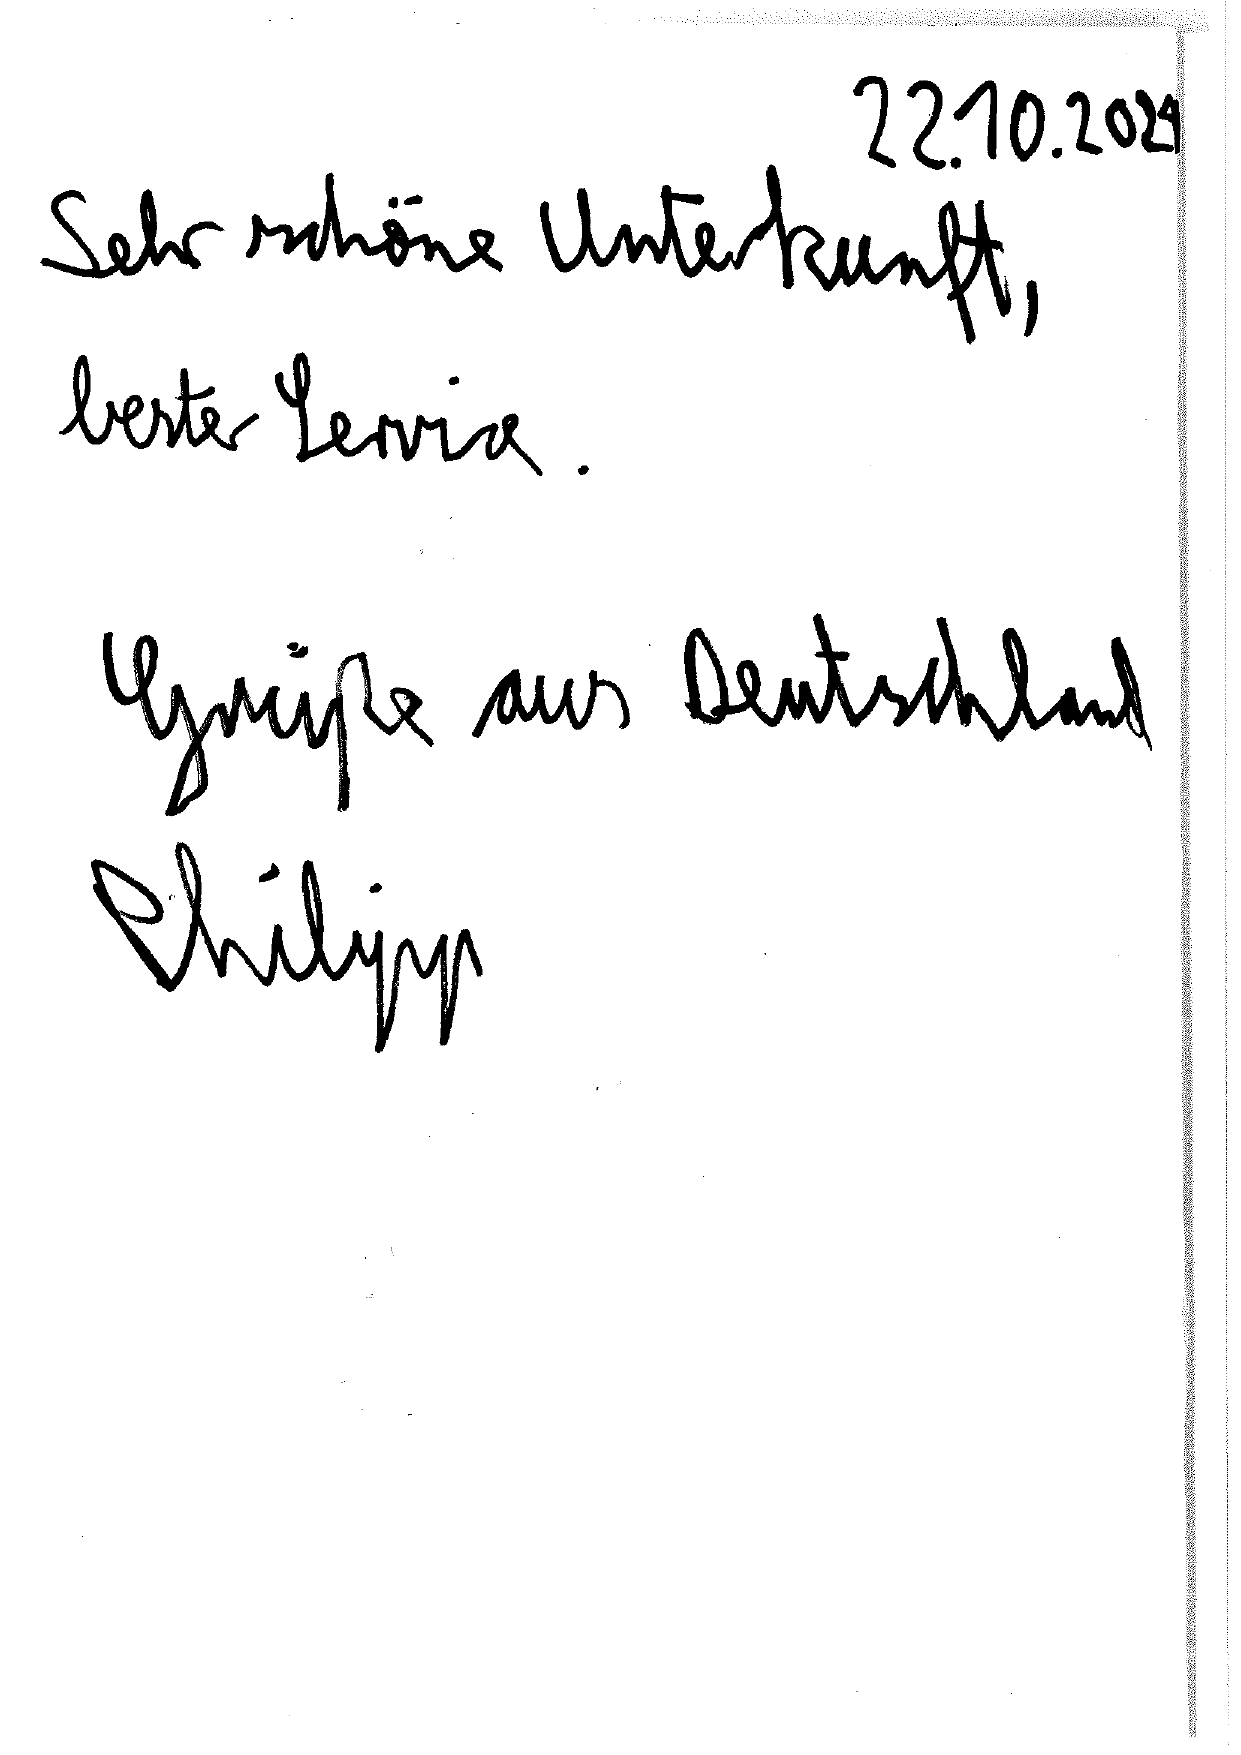 22.10.2024
Sehr schöne Unterkunft,
bester Service.
Grüße aus Deutschland
Philipp